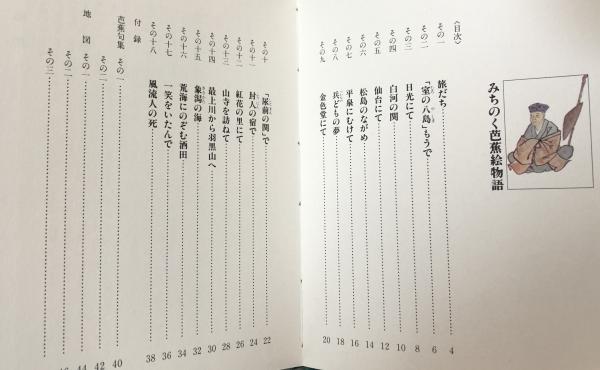 みちのく芭蕉絵物語
〈目次〉
その一 旅だち 4
その二 「室の八島」もうで 6
その三 日光にて 8
その四 白河の関 10
その五 仙台にて 12
その六 松島のながめ 14
その七 平泉にむけて 16
その八 兵どもの夢 18
その九 金色堂にて 20
その十 「尿前の関」で 22
その十一 封人の宿で 24
その十二 紅花の里にて 26
その十三 山寺を訪ねて 28
その十四 最上川から羽黒山へ 30
その十五 象潟の海 32
その十六 荒海にのぞむ酒田 34
その十七 一笑をいたんで 36
その十八 風流人の死 38
付録
芭蕉句集 その一 40
その二 42
地図 その一 44
その二
その三